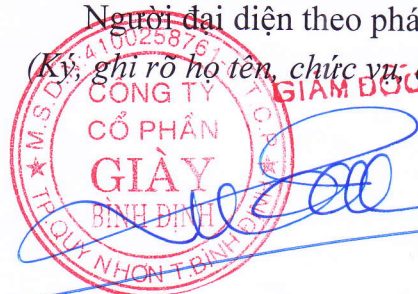 Người đại diện theo phá
(Ký, ghi rõ họ tên, chức vụ,
GIÁM ĐỐC
M.S.D.N:4100258761
C.T.C.P
CÔNG TY
CỔ PHẦN
GIÀY
BÌNH ĐỊNH
TP.QUY NHƠN T.BÌNH ĐỊNH